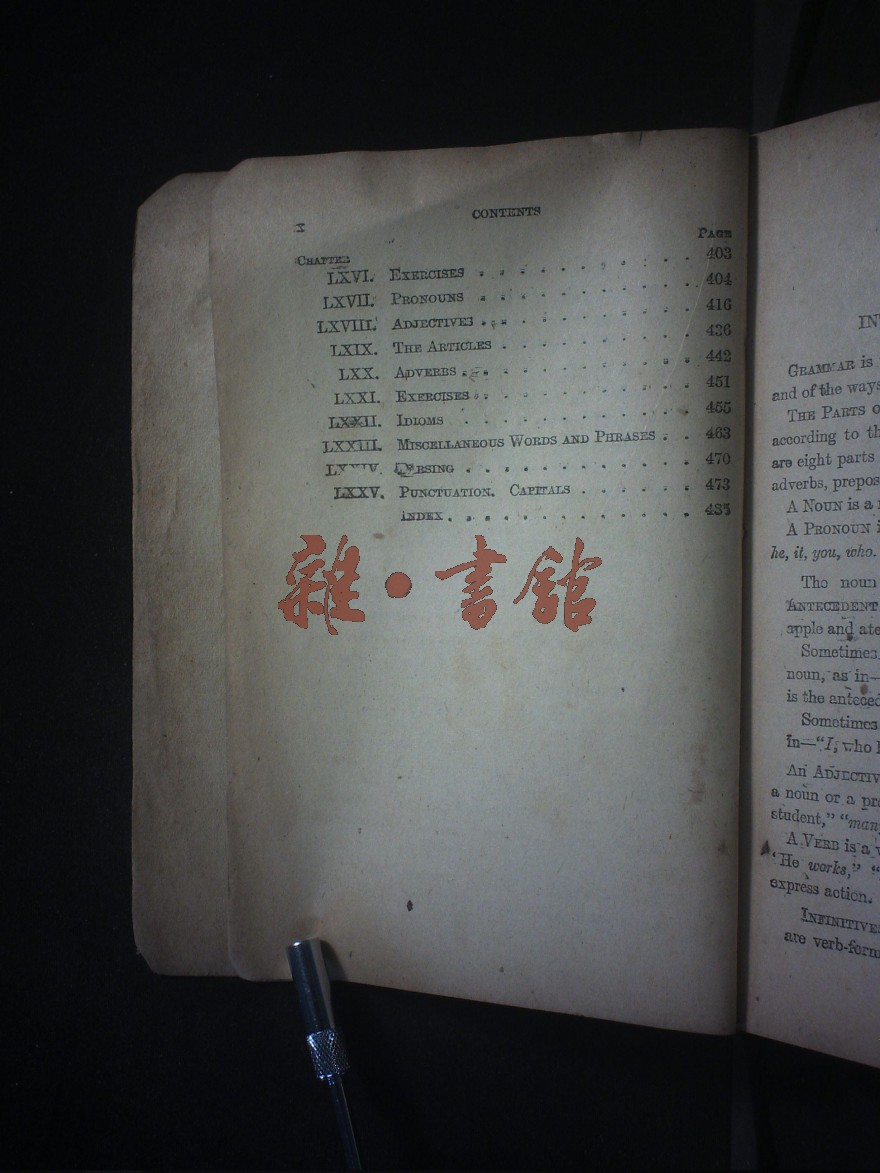 x
CONTENTS
CHAPTER
PAGE
LXVI. EXERCISES . . . . . . . . . . 403
LXVII. PRONOUNS . . . . . . . . . . 404
LXVIII. ADJECTIVES . . . . . . . . . . 416
LXIX. THE ARTICLES . . . . . . . . . 436
LXX. ADVERBS . . . . . . . . . . 442
LXXI. EXERCISES . . . . . . . . . . 451
LXXII. IDIOMS . . . . . . . . . . 455
LXXIII. MISCELLANEOUS WORDS AND PHRASES . . 463
LXXIV. PARSING . . . . . . . . . . 470
LXXV. PUNCTUATION. CAPITALS . . . . . 473
INDEX . . . . . . . . . . .
雜·書館
GRAMMAR is
and of the ways
THE PARTS
according to
are eight parts
adverbs,
A NOUN is a
A PRONOUN
he, it, you, who.
The noun
ANTECEDENT
apple and ate
Sometimes,
noun, as in—
is the
Sometimes
in—"I, who
An
a noun or a
student," "many
A VERB is a
"He works," "
express action.
are